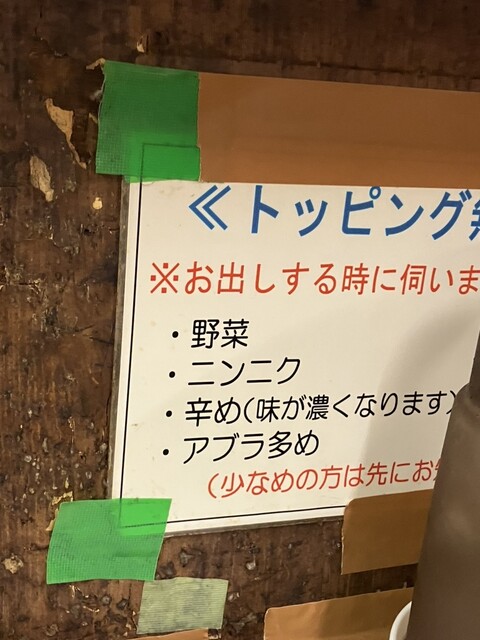 ≪トッピング
※お出しする時に伺いま
・野菜
・ニンニク
・辛め(味が濃くなります)
・アブラ多め
(少なめの方は先にお